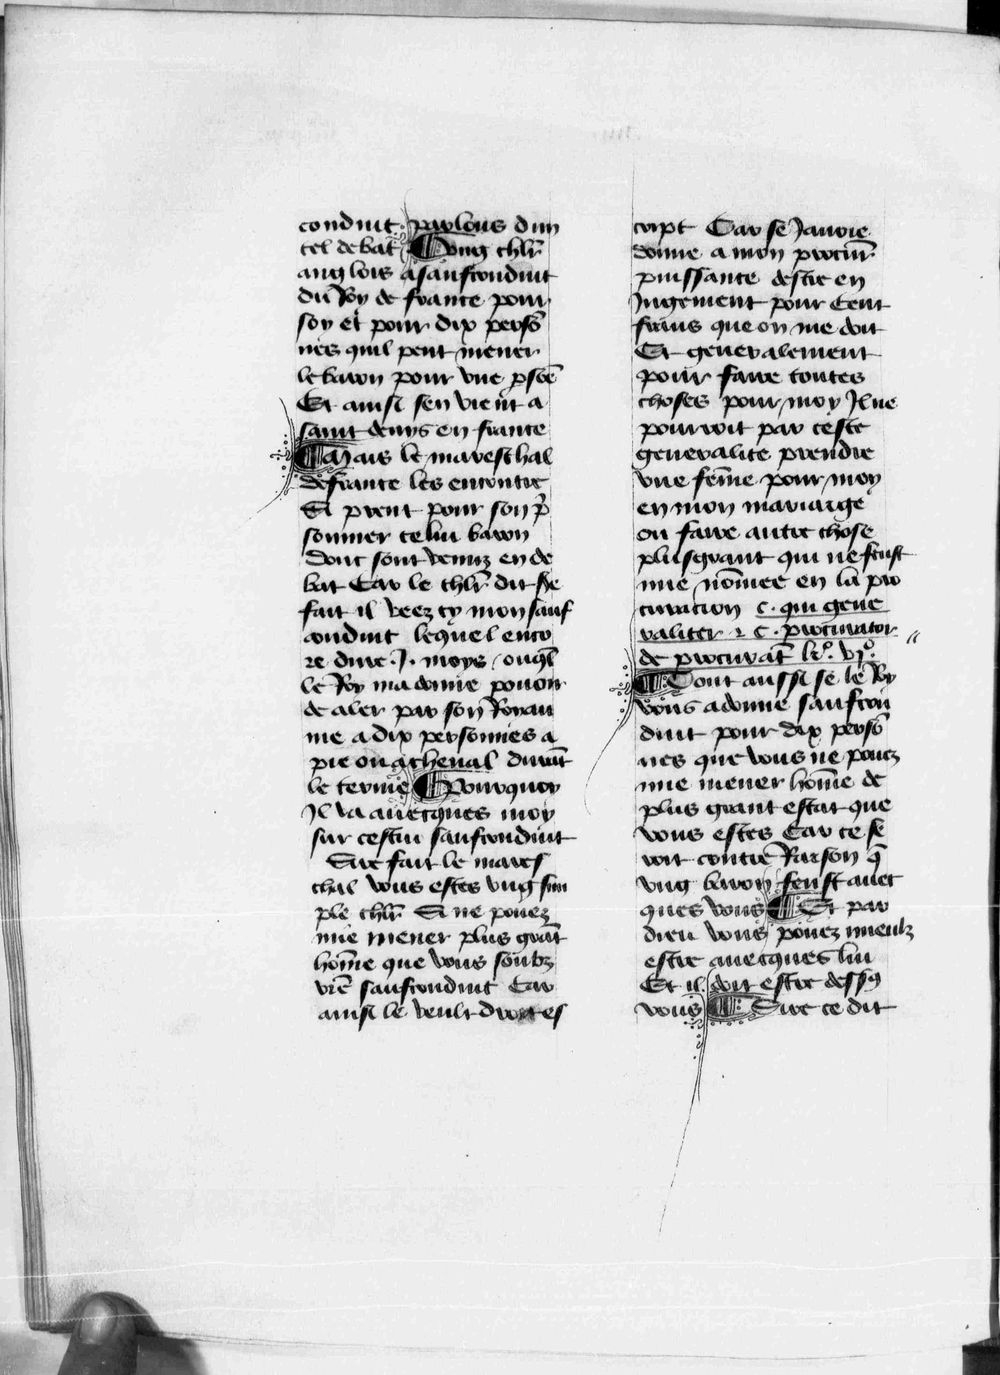 conduit. parlons dun
tel debat ¶ Ung chlr̄
anglois a saufconduit
du Roy de france pour
soy et pour dix persō
nes quil peut mener
le baron pour une ꝑsōe
Et ainsi sen vient a
saint denys en france
¶ Mais le mareschal
de france les encontre
Si prent pour son pͥ
sonnier celui baron
dont sont venuz en de
bat Car le chlr̄ dit Ee
fait il veez cy mon sauf
conduit lequel enco
re dure .J. moys / ouql̄
le Roy ma donne pouoir
de aler par son Royau
me a dix personnes a
pie ou a cheual durāt
le terme ¶ Pourquoy
Jl va auecques moy
sur cestui saufconduit
Sire fait le mares
chal vous estes ung sim
ple chlr̄ Si ne pouez
mie mener plus grāt
hōme que vous soubz
vrē saufconduit Car
ainsi le veult droit es
cript Car se Jauoie
donne a mon procur̄
puissance destre en
Jugement pour Cent
frans que on me doit
Et generalement
pour faire toutes
choses pour moy Jl ne
pourroit par ceste
generalite prendre
une fēme pour moy
en mon mariaige
ou faire autre chose
plus grant qui ne feust
mie nōmee en la pro
curacion c. qui gene
raliter ⁊ c. procurator
de procurat̄ lꝰ. vjº.
¶ Dont aussi se le Roy
vous a donne saufcon
duit pour dix persō
nes que vous ne pouez
mie mener hōme de
plus grant estat que
vous estes Car ce se
roit contre Raison q̄
ung baron feust auec
ques vous ¶ Et par
dieu vous pouez mieulz
estre auecques lui
Et il doit estre dessꝰ
vous ¶ Sire ce dit